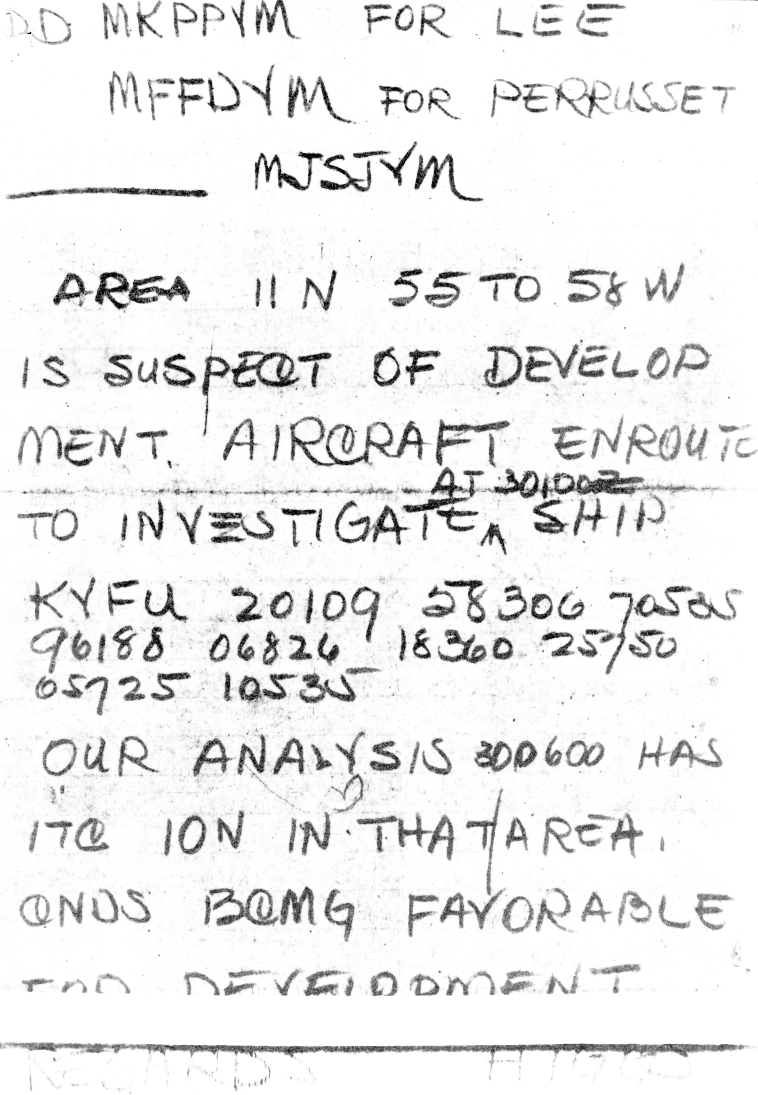 DD MKPPYM FOR LEE
MFFDYM FOR PERRUSSET
MJSJYM
AREA 11 N 55 TO 58 W
IS SUSPECT OF DEVELOP
MENT. AIRCRAFT ENROUTE
AT 30100Z
TO INVESTIGATE SHIP
KYFU 20109 58306 70535
96188 06826 18360 25750
05725 10535
OUR ANALYSIS 300600 HAS
ITC 10N IN THAT AREA.
CNDS BCMG FAVORABLE
FOR DEVELOPMENT
REGARDS